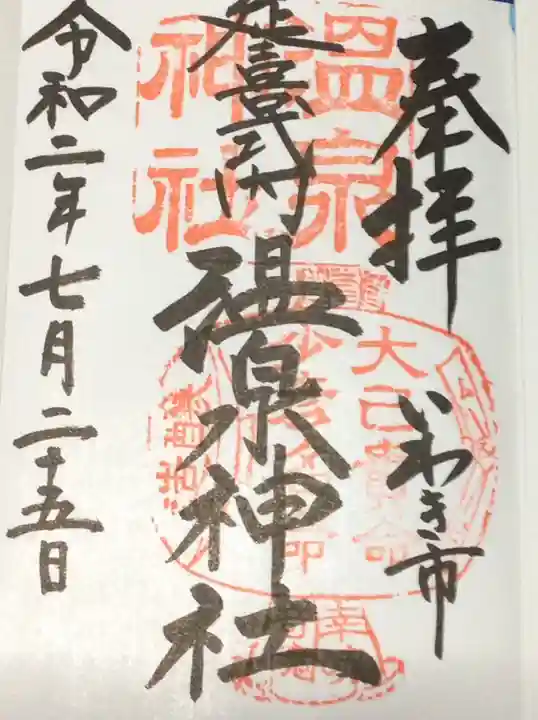 奉拝
いわき市
延喜式内
温泉神社
令和二年七月二十五日
温泉
神社
大己貴命